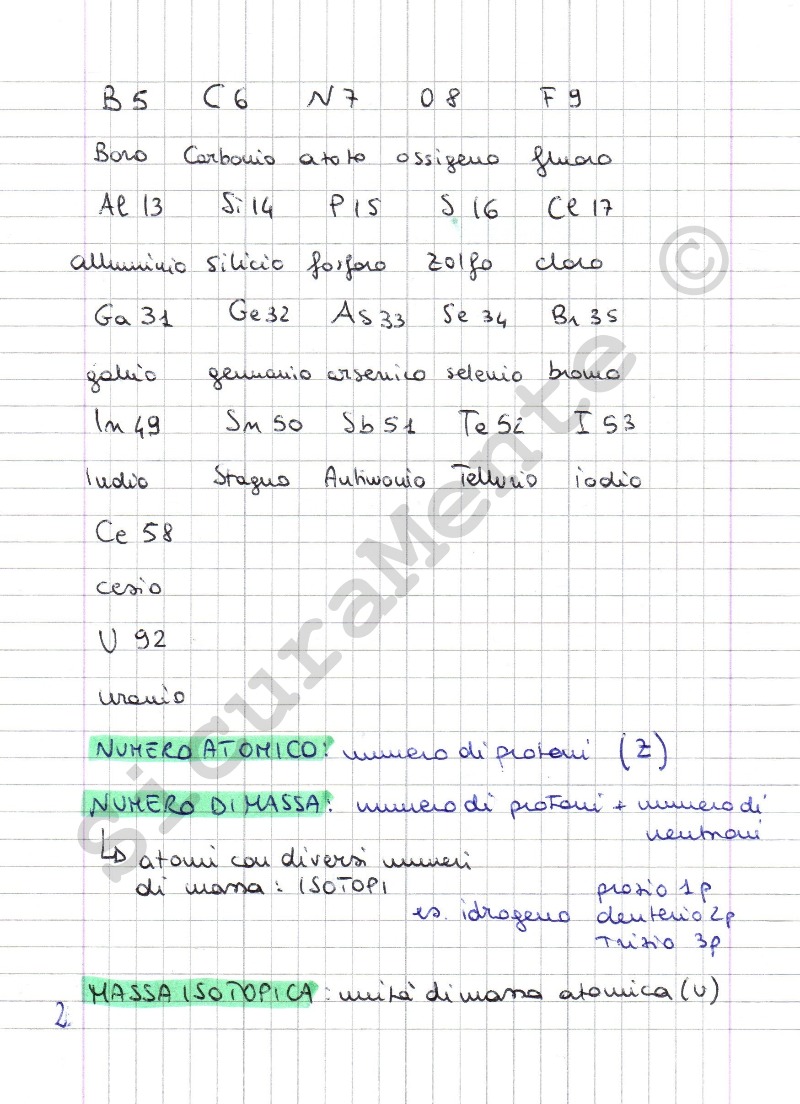 B 5 C 6 N 7 O 8 F 9
Boro Carbonio atoto ossigeno fluoro
Al 13 Si 14 P 15 S 16 Cl 17
alluminio silicio fosforo zolfo cloro
©
Ga 31 Ge 32 As 33 Se 34 Br 35
gallio germanio arsenico selenio bromo
In 49 Sn 50 Sb 51 Te 52 I 53
Indio Stagno Antimonio Tellurio iodio
Ce 58
cesio
U 92
uranio
SicuraMente
NUMERO ATOMICO: numero di protoni (Z)
NUMERO DI MASSA: numero di protoni + numero di
neutroni
↳ atomi con diversi numeri
di massa: ISOTOPI prozio 1p
es. idrogeno deuterio 2p
Trizio 3p
MASSA ISOTOPICA: unità di massa atomica (U)
2.